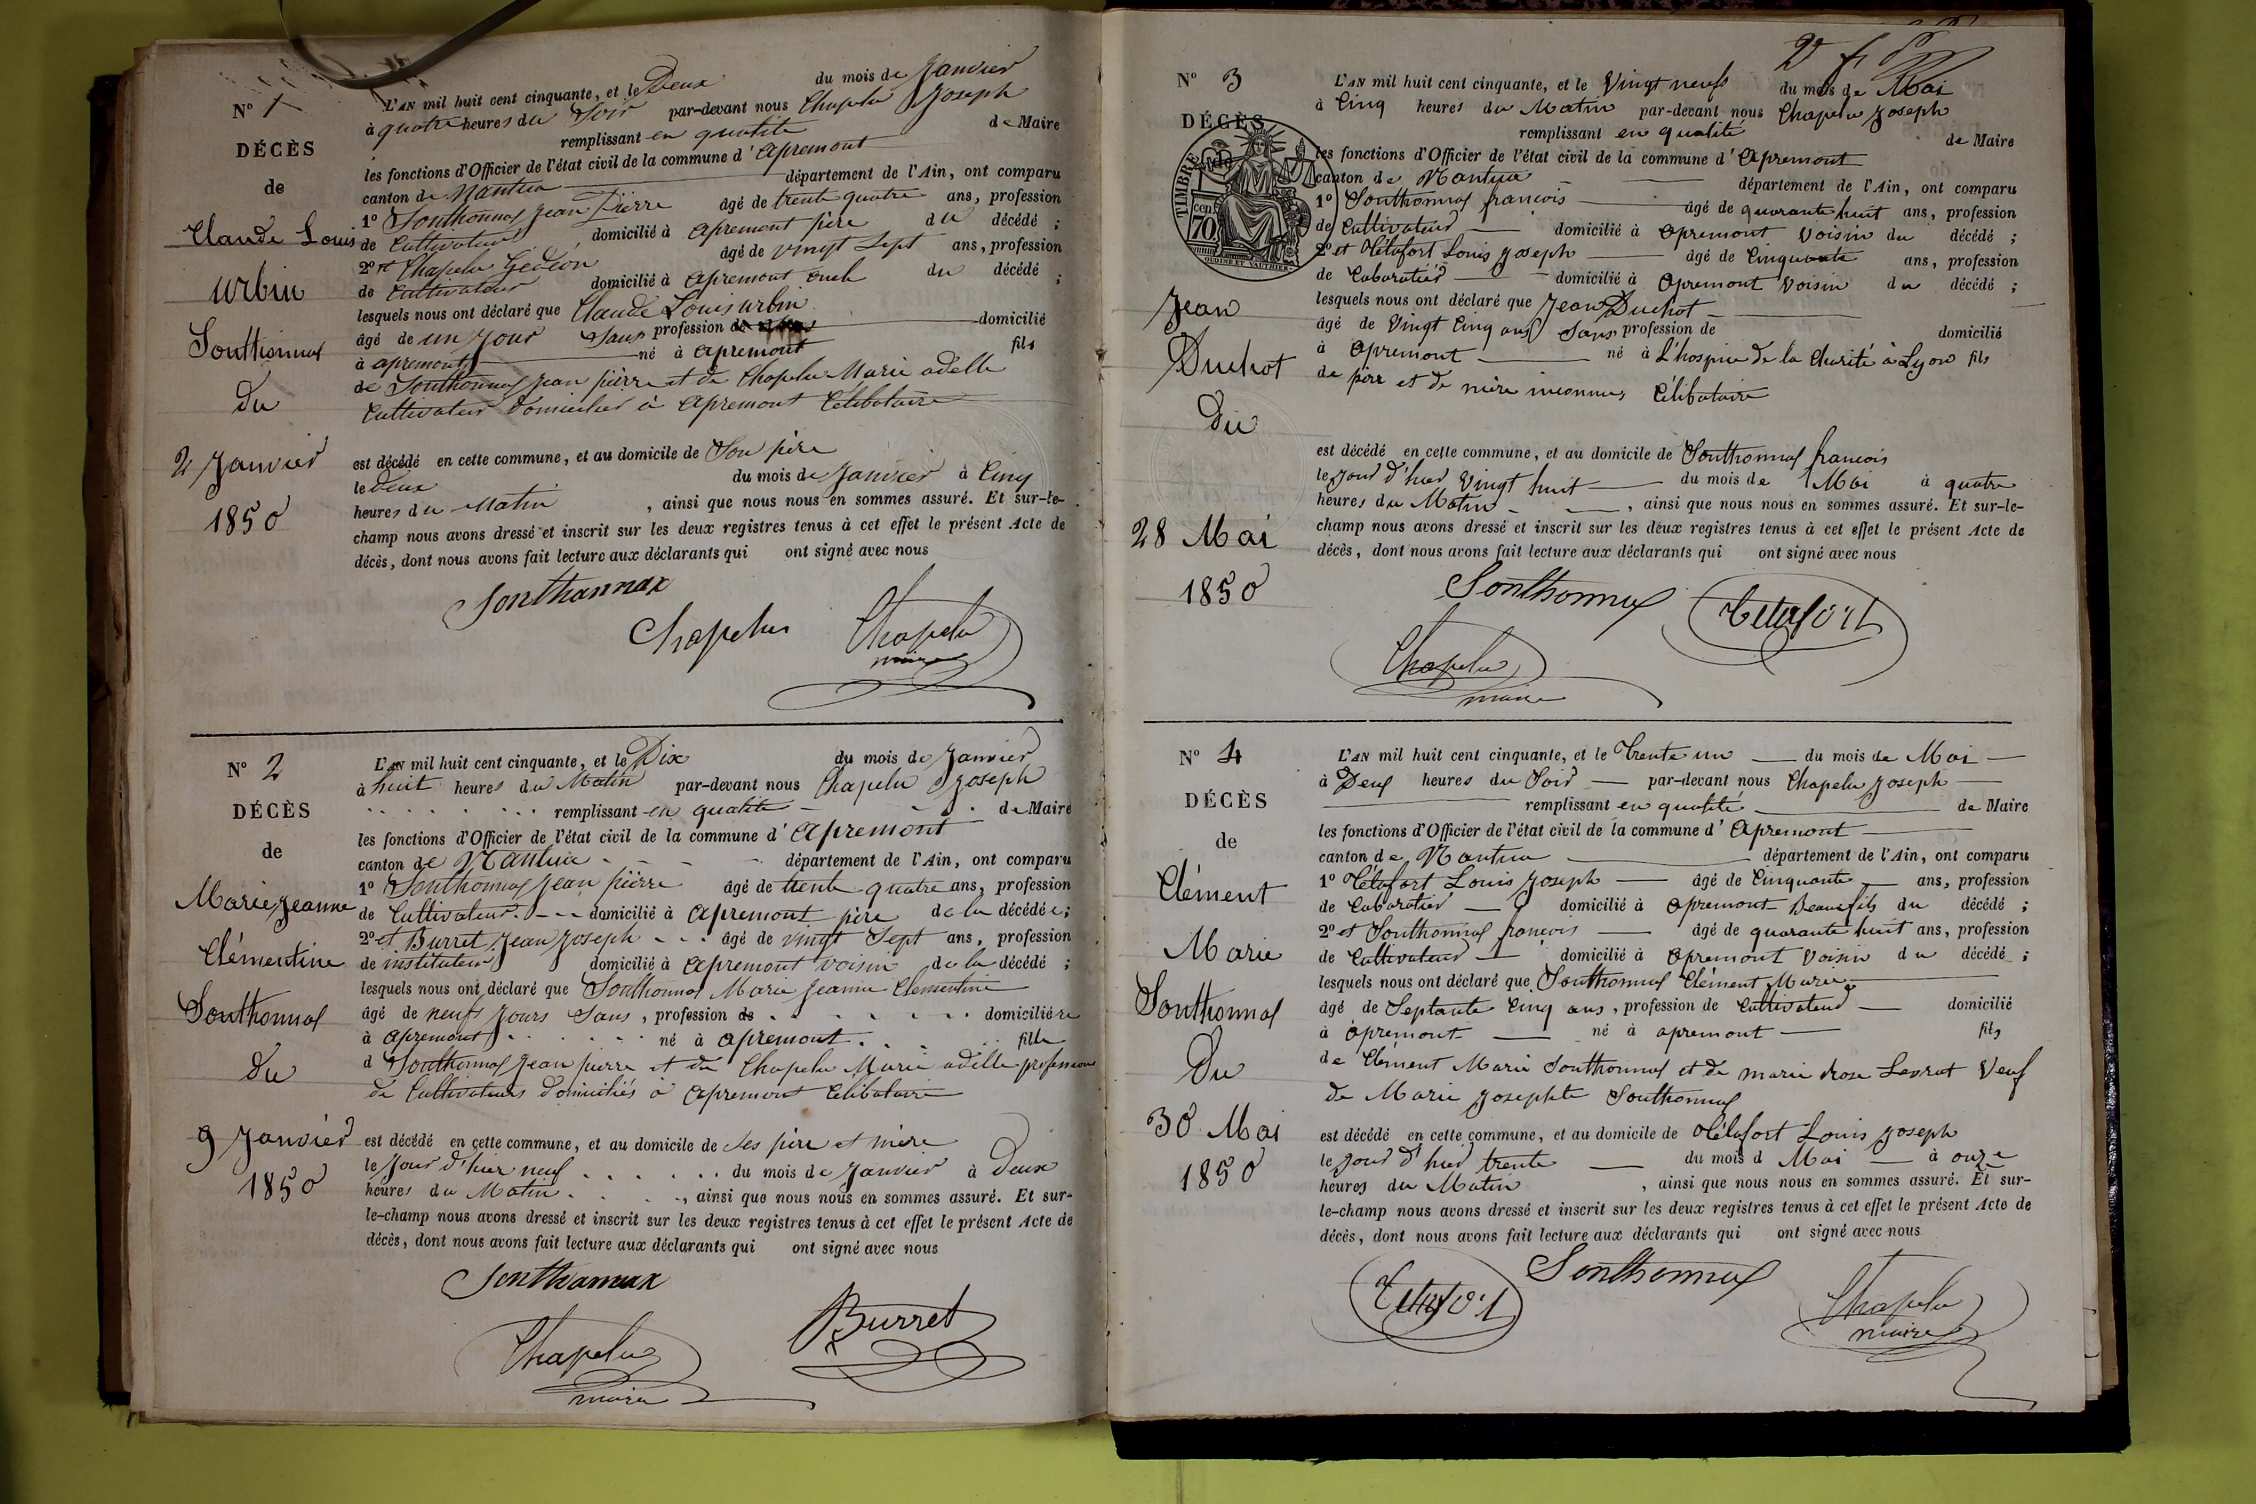 N° 1
DÉCÈS
de
Claude Louis
urbin
Southonnax
du
2 Janvier
1850
L'AN mil huit cent cinquante, et le Deux du mois de Janvier
à quatre heures du Soir par-devant nous Chapelu Joseph
remplissant en qualité de Maire
les fonctions d'Officier de l'état civil de la commune d'apremont
canton de Nantua département de l'Ain, ont comparu
1° Southonnax Jean Pierre âgé de trente quatre ans, profession
de Cultivateur domicilié à apremont père du décédé ;
2° et Chapelu Gedéon âgé de vingt Sept ans, profession
de Cultivateur domicilié à apremont oncle du décédé ;
lesquels nous ont déclaré que Claude Louis urbin
âgé de un Jour Sans profession de domicilié
à apremont né à apremont fils
de Southonnax Jean pierre et de Chapelu Marie adelle
Cultivateur domiciliés à apremont Célibataire
est décédé en cette commune, et au domicile de Son père
le deux du mois de Janvier à Cinq
heures du Matin , ainsi que nous nous en sommes assuré. Et sur-le-
champ nous avons dressé et inscrit sur les deux registres tenus à cet effet le présent Acte de
décès, dont nous avons fait lecture aux déclarants qui ont signé avec nous
Sonthonnax
Chapelu Chapelu
maire
N° 2
DÉCÈS
de
Marie Jeanne
Clémentine
Southonnax
du
9 Janvier
1850
L'AN mil huit cent cinquante, et le Dix du mois de Janvier
à huit heures du Matin par-devant nous Chapelu Joseph
remplissant en qualité de Maire
les fonctions d'Officier de l'état civil de la commune d'apremont
canton de Nantua département de l'Ain, ont comparu
1° Southonnax Jean pierre âgé de trente quatre ans, profession
de Cultivateur domicilié à apremont père de la décédée ;
2° et Burret Jean Joseph âgé de vingt Sept ans, profession
de instituteur domicilié à apremont voisin de la décédé ;
lesquels nous ont déclaré que Southonnax Marie Jeanne Clementine
âgé de neuf Jours Sans , profession de domiciliée
à apremont né à apremont fille
d Southonnax Jean pierre et de Chapelu Marie adelle profession
de Cultivateurs domiciliés à apremont Célibataire
est décédé en cette commune, et au domicile de ses père et mère
le Jour d'hier neuf du mois de Janvier à Deux
heures du Matin , ainsi que nous nous en sommes assuré. Et sur-
le-champ nous avons dressé et inscrit sur les deux registres tenus à cet effet le présent Acte de
décès, dont nous avons fait lecture aux déclarants qui ont signé avec nous
Sonthonnax
Chapelu Burret
maire
N° 3
DÉCÈS
TIMBRE
70 cen.
Jean
Duchot
Du
28 Mai
1850
L'AN mil huit cent cinquante, et le Vingt neuf du mois de Mai
à Cinq heures du Matin par-devant nous Chapelu Joseph
remplissant en qualité de Maire
les fonctions d'Officier de l'état civil de la commune d'apremont
canton de Nantua département de l'Ain, ont comparu
1° Southonnax françois âgé de quarante huit ans, profession
de Cultivateur domicilié à apremont Voisin du décédé ;
2° et Télafort Louis Joseph âgé de Cinquante ans, profession
de Cabaratier domicilié à apremont Voisin du décédé ;
lesquels nous ont déclaré que Jean Duchot
âgé de Vingt Cinq ans Sans profession de domicilié
à apremont né à L'hospice de la Charité à Lyon fils
de père et de mère inconnus Célibataire
est décédé en cette commune, et au domicile de Southonnax françois
le Jour d'hier Vingt huit du mois de Mai à quatre
heures du Matin , ainsi que nous nous en sommes assuré. Et sur-le-
champ nous avons dressé et inscrit sur les deux registres tenus à cet effet le présent Acte de
décès, dont nous avons fait lecture aux déclarants qui ont signé avec nous
Sonthonnax Télafort
Chapelu
maire
N° 4
DÉCÈS
de
Clément
Marie
Southonnax
Du
30 Mai
1850
L'AN mil huit cent cinquante, et le Trente un du mois de Mai
à Deux heures du Soir par-devant nous Chapelu Joseph
remplissant en qualité de Maire
les fonctions d'Officier de l'état civil de la commune d'apremont
canton de Nantua département de l'Ain, ont comparu
1° Télafort Louis Joseph âgé de Cinquante ans, profession
de Cabaratier domicilié à apremont Beaufils du décédé ;
2° et Southonnax françois âgé de quarante huit ans, profession
de Cultivateur domicilié à apremont Voisin du décédé ;
lesquels nous ont déclaré que Southonnax Clément Marie
âgé de Septante Cinq ans, profession de Cultivateur domicilié
à apremont né à apremont fils
de Clément Marie Southonnax et de marie drose Levrat Veuf
de Marie Josephte Southonnax
est décédé en cette commune, et au domicile de Télafort Louis Joseph
le Jour d'hier trente du mois d Mai à onze
heures du Matin , ainsi que nous nous en sommes assuré. Et sur-
le-champ nous avons dressé et inscrit sur les deux registres tenus à cet effet le présent Acte de
décès, dont nous avons fait lecture aux déclarants qui ont signé avec nous
Télafort Sonthonnax Chapelu
maire